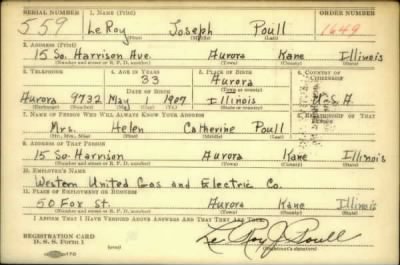 SERIAL NUMBER 1. NAME (Print) ORDER NUMBER
559 LeRoy Joseph Poull 1649
(First) (Middle) (Last)
2. ADDRESS (Print)
15 So. Harrison Ave. Aurora Kane Illinois
(Number and street or R. F. D. number) (Town) (County) (State)
3. TELEPHONE 4. AGE IN YEARS 5. PLACE OF BIRTH 6. COUNTRY OF CITIZENSHIP
33 Aurora
DATE OF BIRTH (Town or county)
Aurora 9732 May 1907 Illinois U.S.A.
(Exchange) (Number) (Mo.) (Day) (Yr.) (State or country)
7. NAME OF PERSON WHO WILL ALWAYS KNOW YOUR ADDRESS 8. RELATIONSHIP OF THAT PERSON
Mrs. Helen Catherine Poull
(Mr., Mrs., Miss) (First) (Middle) (Last)
9. ADDRESS OF THAT PERSON
15 So. Harrison Aurora Kane Illinois
(Number and street or R. F. D. number) (Town) (County) (State)
10. EMPLOYER'S NAME
Western United Gas and Electric Co.
11. PLACE OF EMPLOYMENT OR BUSINESS
50 Fox St. Aurora Kane Illinois
(Number and street or R. F. D. number) (Town) (County) (State)
I AFFIRM THAT I HAVE VERIFIED ABOVE ANSWERS AND THAT THEY ARE TRUE.
REGISTRATION CARD
D. S. S. Form 1 Le Roy J. Poull
(Registrant's signature)